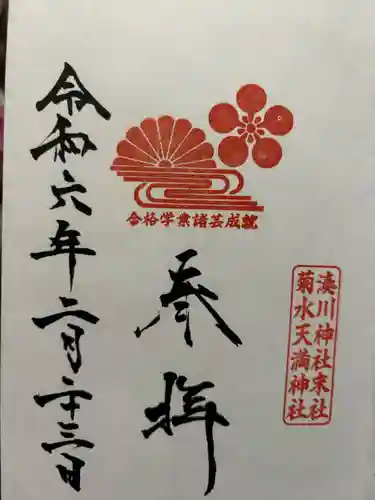 湊川神社末社
菊水天満神社
合格学業諸芸成就
奉拝
令和六年二月二十三日